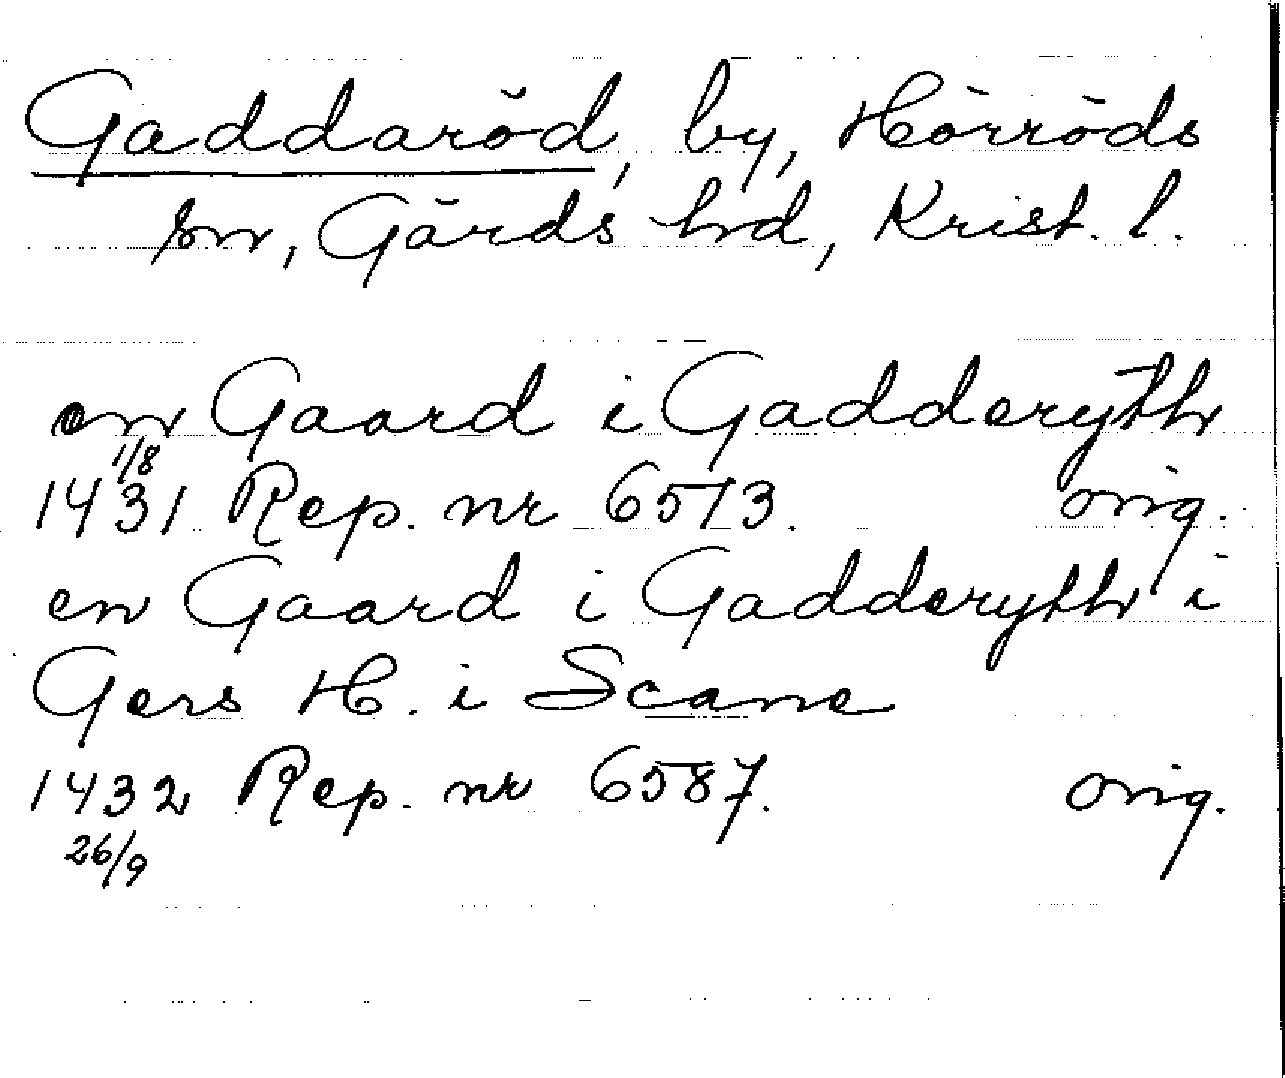 Gaddaröd, by, Hörröds
sn, Gärds hd, Krist. l.
en Gaard i Gadderyth
1/8
1431 Rep. nr 6513. orig.
en Gaard i Gadderyth i
Gers H. i Scane
1432 Rep. nr 6587. orig.
26/9